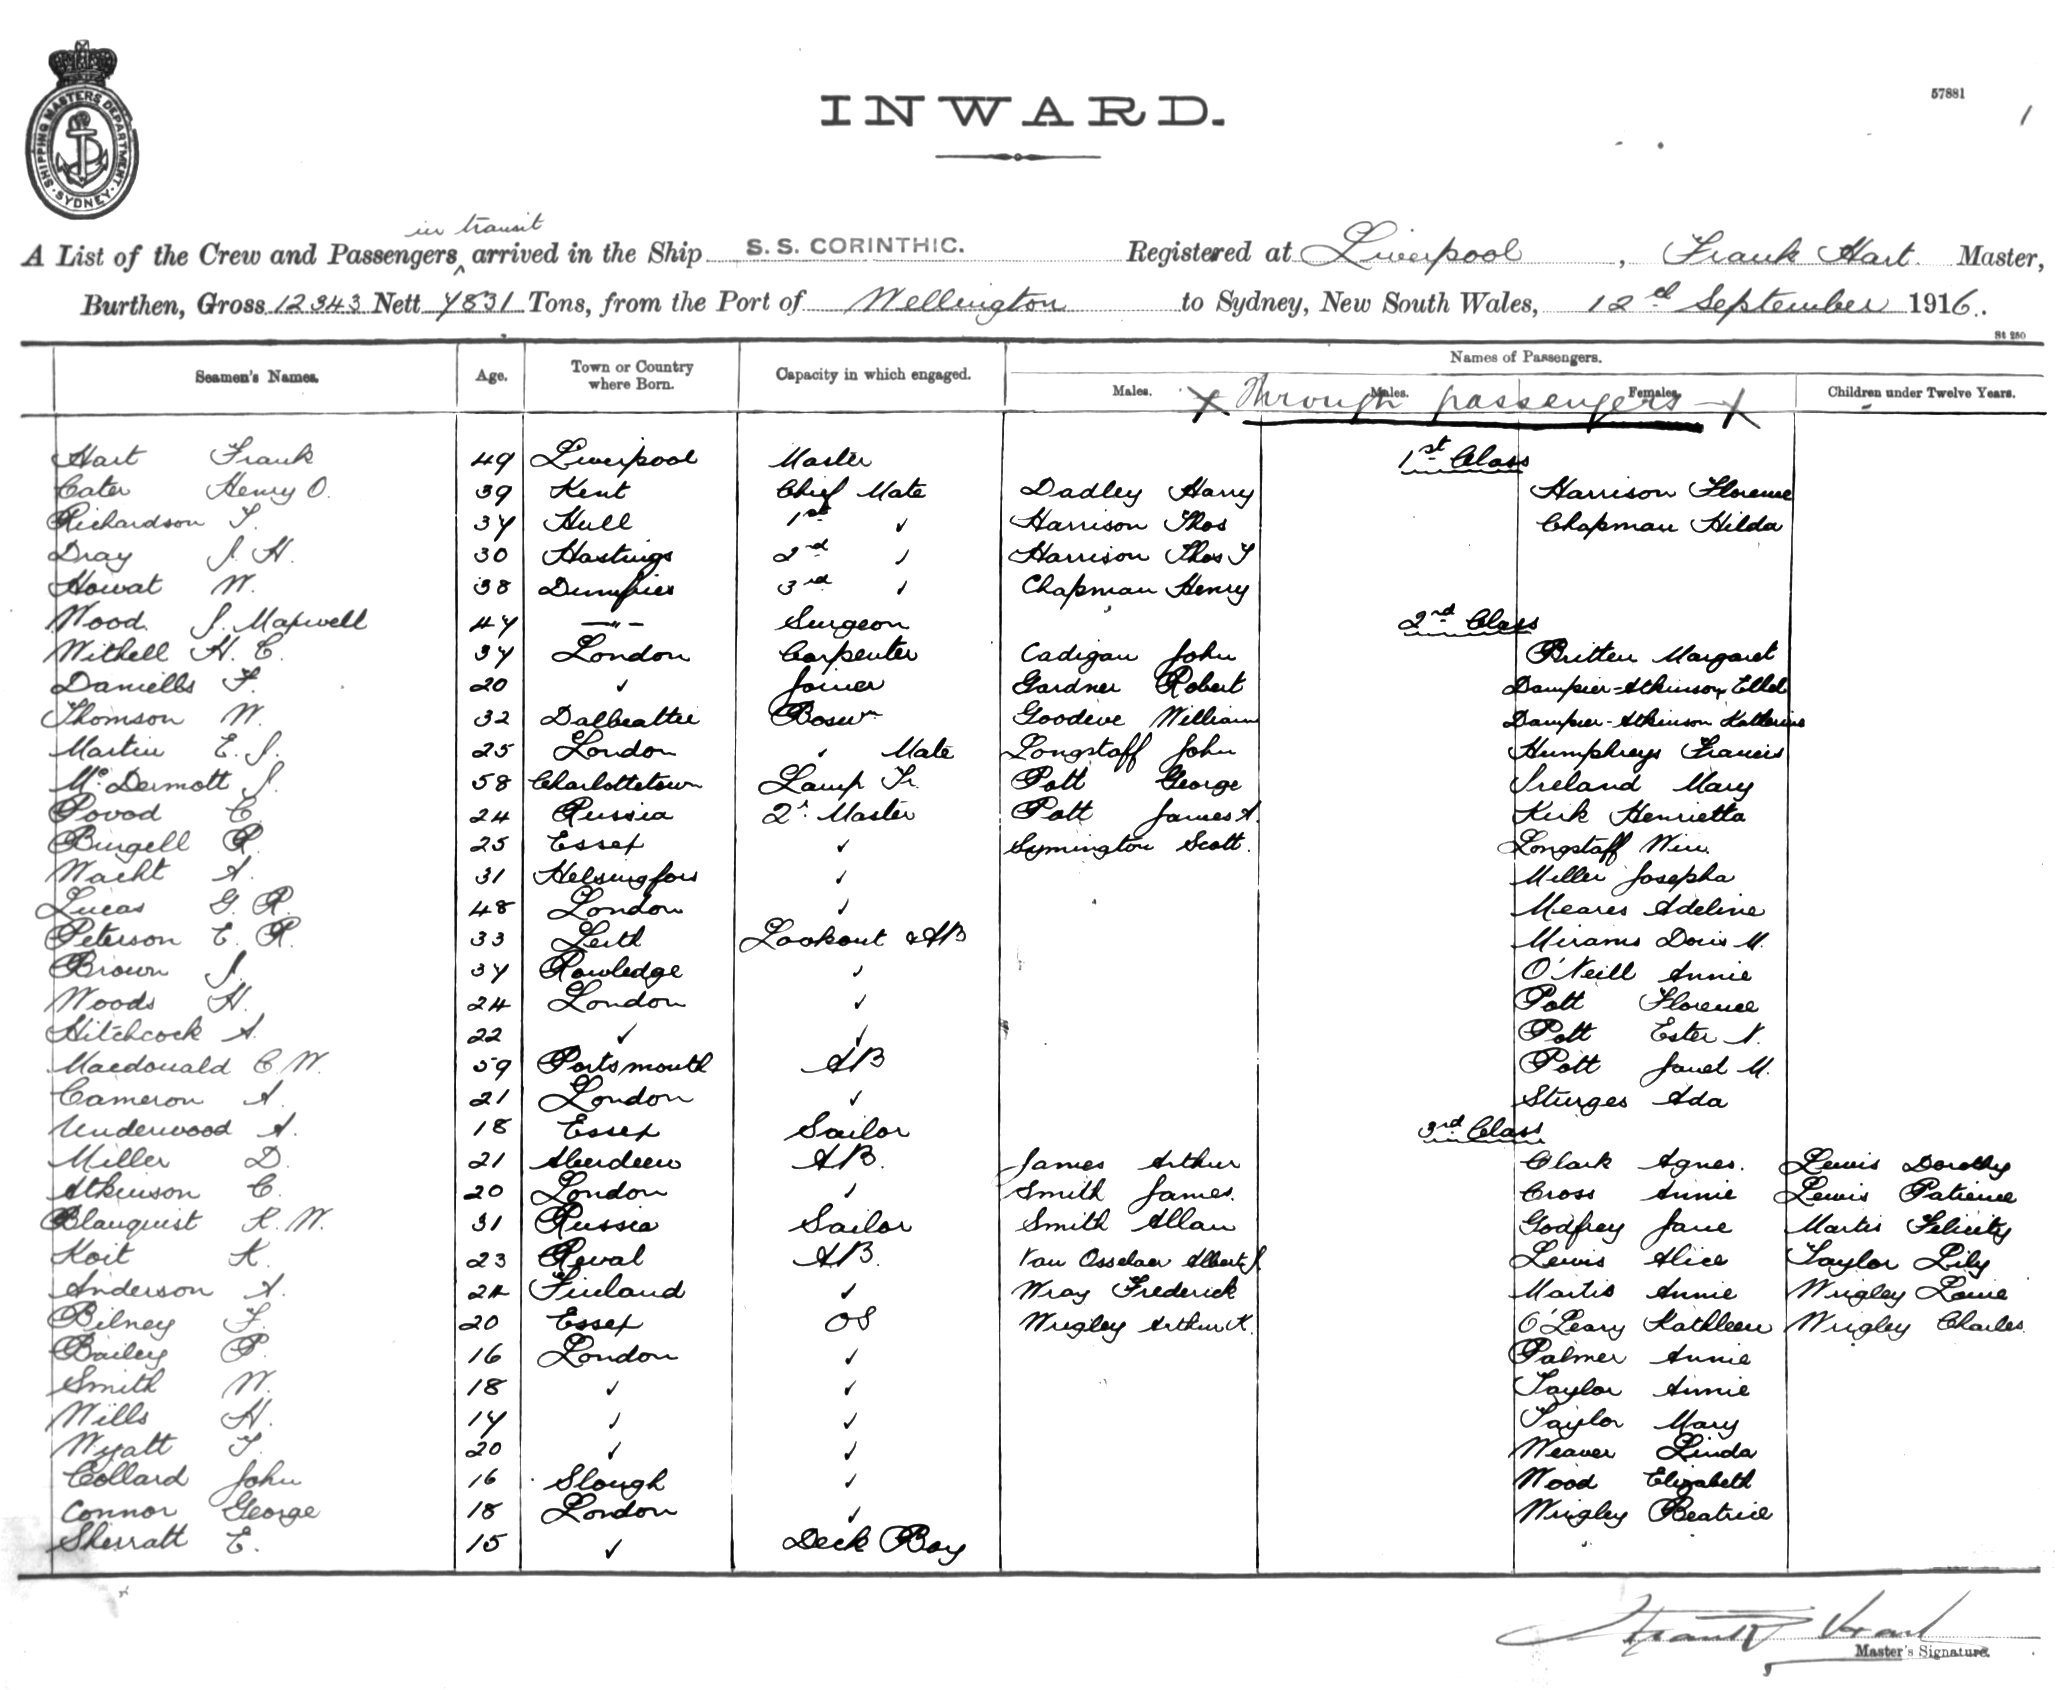 SHIPPING MASTERS DEPARTMENT. SYDNEY
57881
1
INWARD.
in transit
A List of the Crew and Passengers arrived in the Ship S. S. CORINTHIC. Registered at Liverpool, Frank Hart. Master,
Burthen, Gross 12343 Nett 7831 Tons, from the Port of Wellington to Sydney, New South Wales, 12th September 1916.
St 250
Names of Passengers.
Seamen's Names. Age. Town or Country where Born. Capacity in which engaged. Males. Males. Females. Children under Twelve Years.
x Through passengers x
Hart Frank 49 Liverpool Master 1st Class
Cater Henry O. 39 Kent Chief Mate Dadley Harry Harrison Florence
Richardson T. 37 Hull 1st ✓ Harrison Thos Chapman Hilda
Dray J. H. 30 Hastings 2nd ✓ Harrison Thos T
Howat W. 38 Dumfries 3rd ✓ Chapman Henry
Wood J. Maxwell 47 —"— Surgeon 2nd Class
Withell H. C. 37 London Carpenter Cadigan John Britten Margaret
Daniells F. 20 ✓ Joiner Gardner Robert Dampier-Atkinson Ethel
Thomson W. 32 Dalbeattie Bosun Goodeve William Dampier-Atkinson Katherine
Martin E. J. 25 London ✓ Mate Longstaff John Humphreys Francis
McDermott J. 58 Charlottetown Lamp Tr. Pott George Ireland Mary
Povod C. 24 Russia 2r Master Pott James A. Kirk Henrietta
Burgell R. 25 Essex ✓ Symington Scott. Longstaff Win.
Wacht A. 31 Helsingfors ✓ Miller Josepha
Lucas G. R. 48 London ✓ Meares Adeline
Peterson E. R. 33 Leith Lookout & AB Mirams Doris M.
Brown J. 37 Rowledge ✓ O'Neill Annie
Woods H. 24 London ✓ Pott Florence
Hitchcock A. 22 ✓ ✓ Pott Ester N.
Macdonald C. W. 59 Portsmouth AB Pott Janet M.
Cameron A. 21 London ✓ Sturges Ada
Underwood A. 18 Essex Sailor 3rd Class
Miller D. 21 Aberdeen AB. James Arthur Clark Agnes. Lewis Dorothy
Atkinson C. 20 London ✓ Smith James. Cross Annie Lewis Patience
Blauquist K. W. 31 Russia Sailor Smith Allan Godfrey Jane Martis Felicity
Koit K. 23 Reval AB. Van Osselaer Albert J. Lewis Alice Taylor Lily
Anderson A. 24 Finland ✓ Wray Frederick Martis Annie Wrigley Louie
Bilney F. 20 Essex OS Wrigley Arthur K. O'Leary Kathleen Wrigley Charles.
Bailey P. 16 London ✓ Palmer Annie
Smith W. 18 ✓ ✓ Taylor Annie
Wills H. 17 ✓ ✓ Taylor Mary
Wyatt T. 20 ✓ ✓ Weaver Linda
Collard John 16 Slough ✓ Wood Elizabeth
Connor George 18 London ✓ Wrigley Beatrice
Sherratt E. 15 ✓ Deck Boy
Frank Hart
Master's Signature.